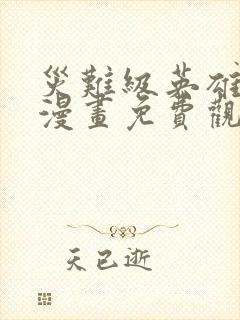 災難級英雄
漫畫免費觀
天已逝